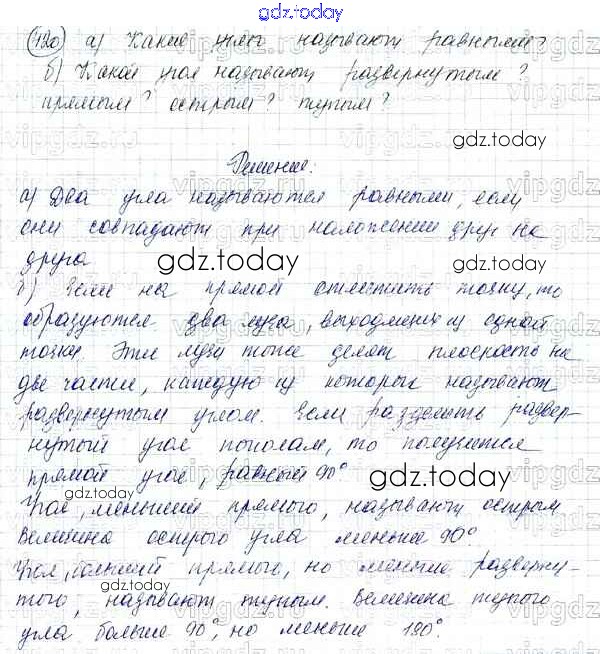 gdz.today
120 а) Какие углы называют равными?
б) Какой угол называют развернутым?
прямым? острым? тупым?
gdz.today
Решение.
а) Два угла называются равными, если
они совпадают при наложении друг на
друга
gdz.today
б) Если на прямой отметить точку, то
образуются два луча, выходящих из одной
точки. Эти лучи тоже делят плоскость на
две части, каждую из которых называют
развернутым углом. Если разделить развер-
нутый угол пополам, то получится
прямой угол, равный 90°
gdz.today
Угол, меньший прямого, называют острым
gdz.today
Величина острого угла меньше 90°.
Угол, больший прямого, но меньше разверну-
того, называют тупым. Величина тупого
gdz.today
угла больше 90°, но меньше 180°.